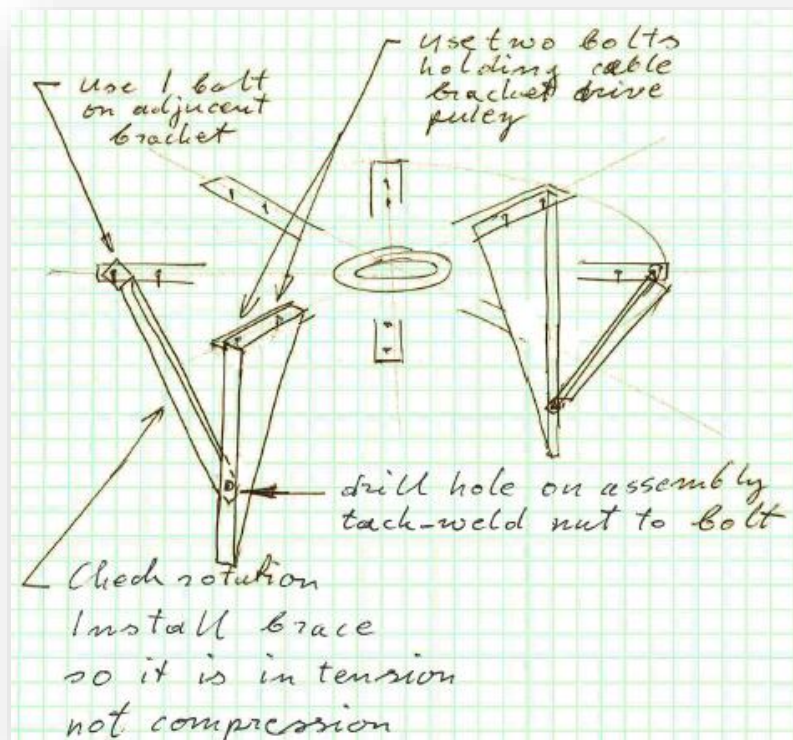 Use 1 bolt
on adjucent
bracket
use two bolts
holding cable
bracket drive
puley
drill hole on assembly
tack-weld nut to bolt
Check rotation
Install brace
so it is in tension
not compression